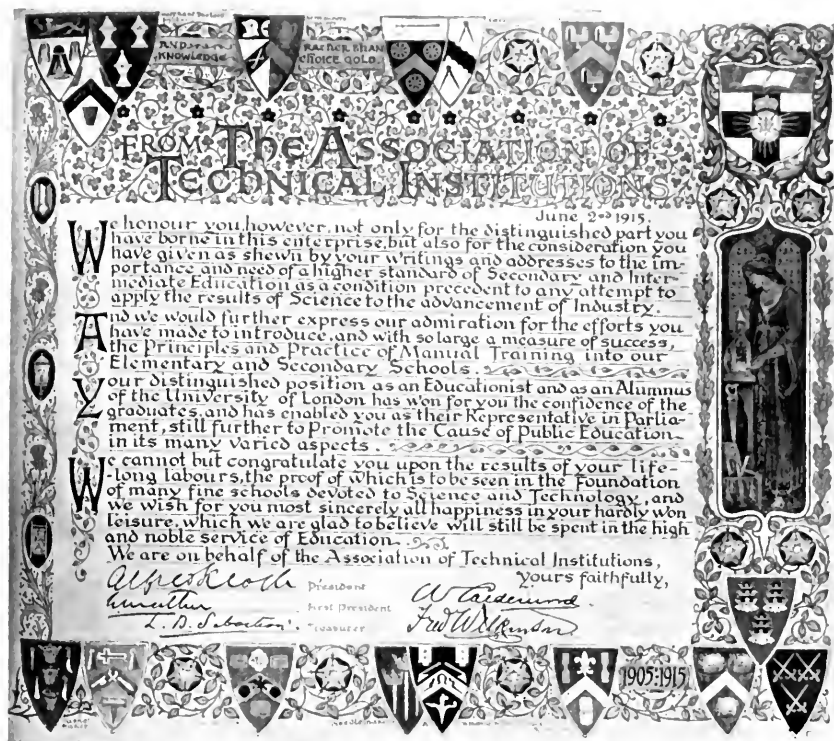 AND
KNOWLEDGE
RATHER THAN
CHOICE GOLD.
FROM THE ASSOCIATION OF
TECHNICAL INSTITUTIONS
June 2nd 1915.
We honour you, however, not only for the distinguished part you
have borne in this enterprise, but also for the consideration you
have given as shewn by your writings and addresses to the im-
portance and need of a higher standard of Secondary and Inter-
mediate Education as a condition precedent to any attempt to
apply the results of Science to the advancement of Industry.
And we would further express our admiration for the efforts you
have made to introduce, and with so large a measure of success,
the Principles and Practice of Manual Training into our
Elementary and Secondary Schools.
Your distinguished position as an Educationist and as an Alumnus
of the University of London has won for you the confidence of the
graduates, and has enabled you as their Representative in Parlia-
ment, still further to Promote the Cause of Public Education
in its many varied aspects.
We cannot but congratulate you upon the results of your life-
-long labours, the proof of which is to be seen in the Foundation
of many fine schools devoted to Science and Technology, and
we wish for you most sincerely all happiness in your hardly won
leisure, which we are glad to believe will still be spent in the high
and noble service of Education.
We are on behalf of the Association of Technical Institutions,
Yours faithfully,
President
First President
Treasurer
Fred Wilkinson.
1905:1915